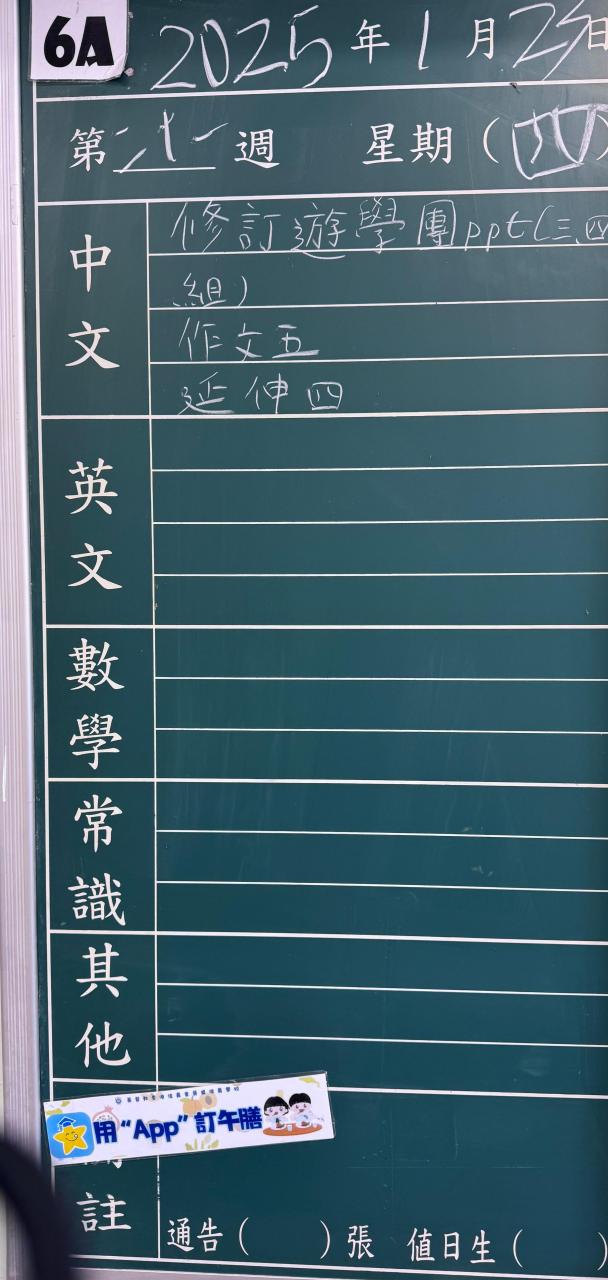 6A
2025年1月23日
第二十一週 星期(四)
中文
修訂遊學團ppt(三、四
組)
作文五
延伸四
英文
數學
常識
其他
用“App”訂午膳
註
通告( )張 值日生( )